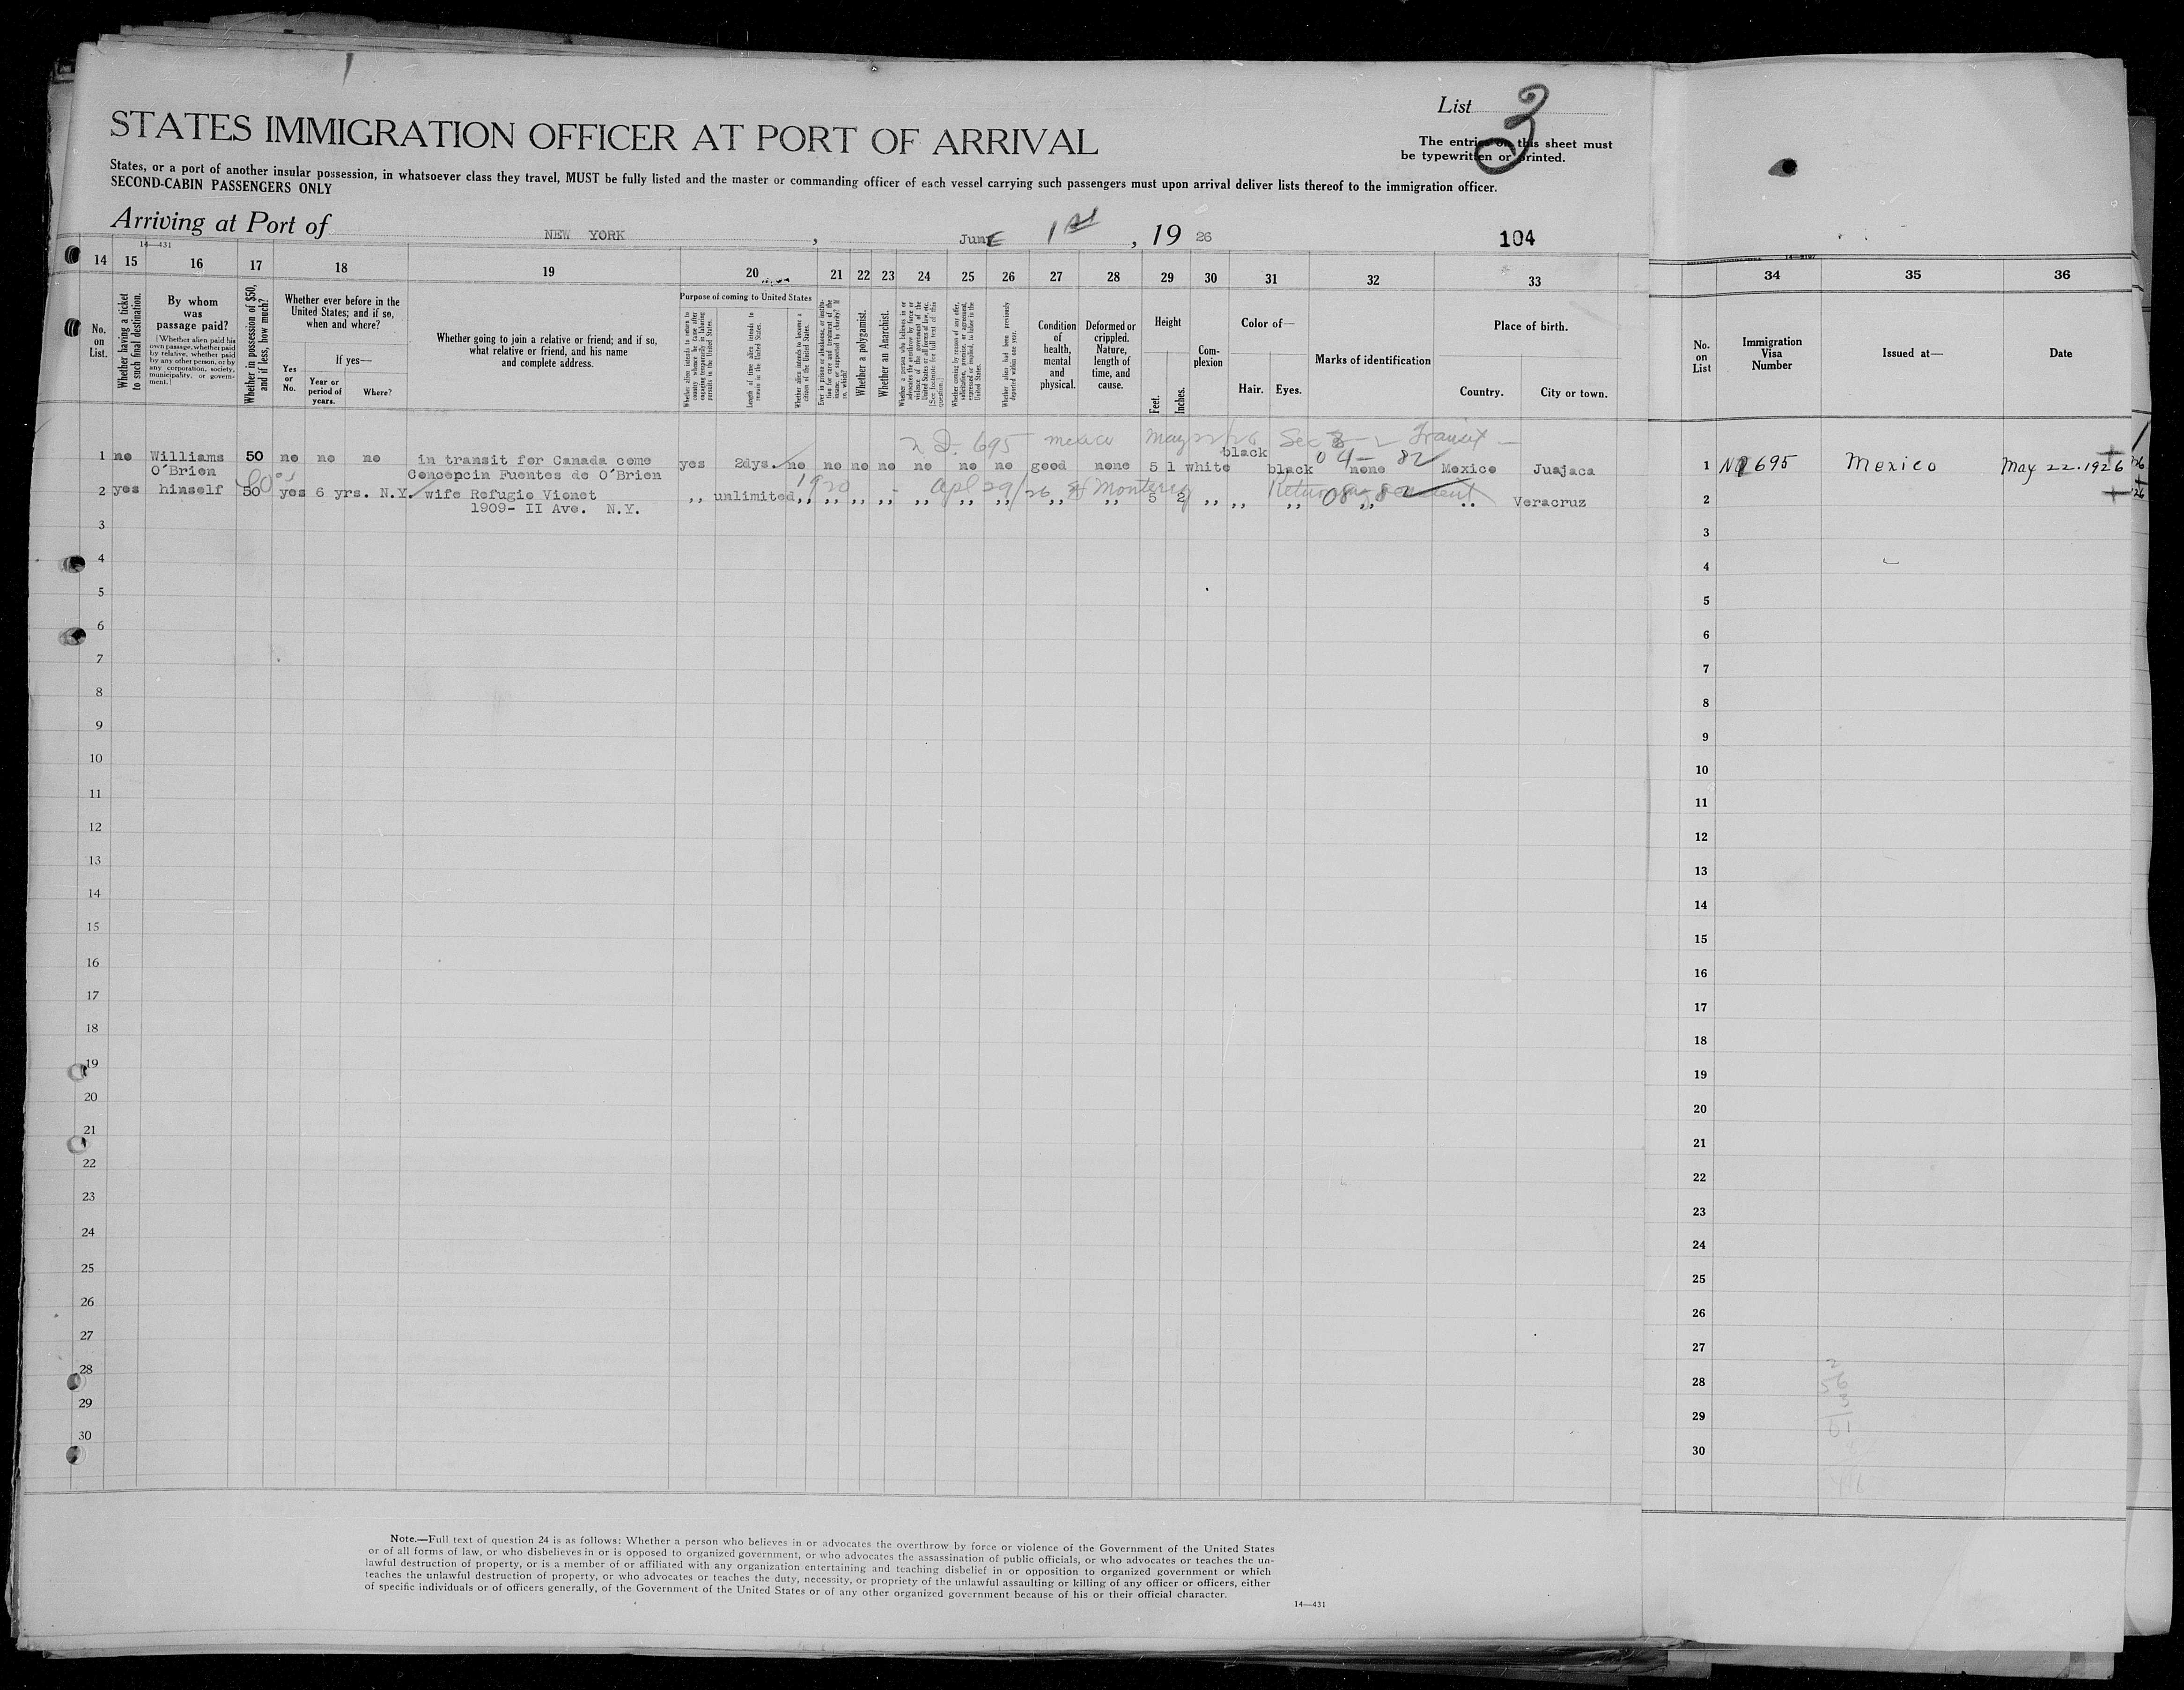 List 3
STATES IMMIGRATION OFFICER AT PORT OF ARRIVAL
The entries on this sheet must
be typewritten or printed.
States, or a port of another insular possession, in whatsoever class they travel, MUST be fully listed and the master or commanding officer of each vessel carrying such passengers must upon arrival deliver lists thereof to the immigration officer.
SECOND-CABIN PASSENGERS ONLY
Arriving at Port of NEW YORK, June 1st, 1926
104
14—431
14 15 16 17 18 19 20 21 22 23 24 25 26 27 28 29 30 31 32 33 34 35 36
No. on List.
Whether having a ticket to such final destination.
By whom was passage paid?
[Whether alien paid his own passage, whether paid by relative, whether paid by any other person, or by any corporation, society, municipality, or government.]
Whether in possession of $50, and if less, how much?
Whether ever before in the United States; and if so, when and where?
Yes or No.
If yes—
Year or period of years.
Where?
Whether going to join a relative or friend; and if so, what relative or friend, and his name and complete address.
Purpose of coming to United States
Whether alien intends to return to country whence he came after engaging temporarily in laboring pursuits in the United States.
Length of time alien intends to remain in the United States.
Whether alien intends to become a citizen of the United States.
Ever in prison or almshouse, or institution for care and treatment of the insane, or supported by charity? If so, which?
Whether a polygamist.
Whether an Anarchist.
Whether a person who believes in or advocates the overthrow by force or violence of the Government of the United States or all forms of law, etc. [See footnote for full text of this question.]
Whether coming by reason of any offer, solicitation, promise, or agreement, expressed or implied, to labor in the United States.
Whether alien had been previously deported within one year.
Condition of health, mental and physical.
Deformed or crippled. Nature, length of time, and cause.
Height
Feet.
Inches.
Complexion
Color of—
Hair.
Eyes.
Marks of identification
Place of birth.
Country.
City or town.
No. on List
Immigration Visa Number
Issued at—
Date
695 Mexico May 22/26 Sec 3-2 Transit
04- 82
1 no Williams 50 no no no in transit for Canada come yes 2dys. no no no no no no no good none 5 1 white black black none Mexico Juajaca
O'Brien Concepcin Fuentes de O'Brien
1920 Apl 29/26 Monterey
2 yes himself 50 yes 6 yrs. N.Y. wife Refugio Vionet ,, unlimited ,, ,, ,, ,, ,, ,, ,, ,, ,, 5 2 ,, ,, ,, ,, ,, Veracruz
1909- II Ave. N.Y.
1 No 695 Mexico May 22.1926
2
3
4
5
6
7
8
9
10
11
12
13
14
15
16
17
18
19
20
21
22
23
24
25
26
27
28
29
30
Note.—Full text of question 24 is as follows: Whether a person who believes in or advocates the overthrow by force or violence of the Government of the United States
or of all forms of law, or who disbelieves in or is opposed to organized government, or who advocates the assassination of public officials, or who advocates or teaches the un-
lawful destruction of property, or is a member of or affiliated with any organization entertaining and teaching disbelief in or opposition to organized government or which
teaches the unlawful destruction of property, or who advocates or teaches the duty, necessity, or propriety of the unlawful assaulting or killing of any officer or officers, either
of specific individuals or of officers generally, of the Government of the United States or of any other organized government because of his or their official character.
14—431